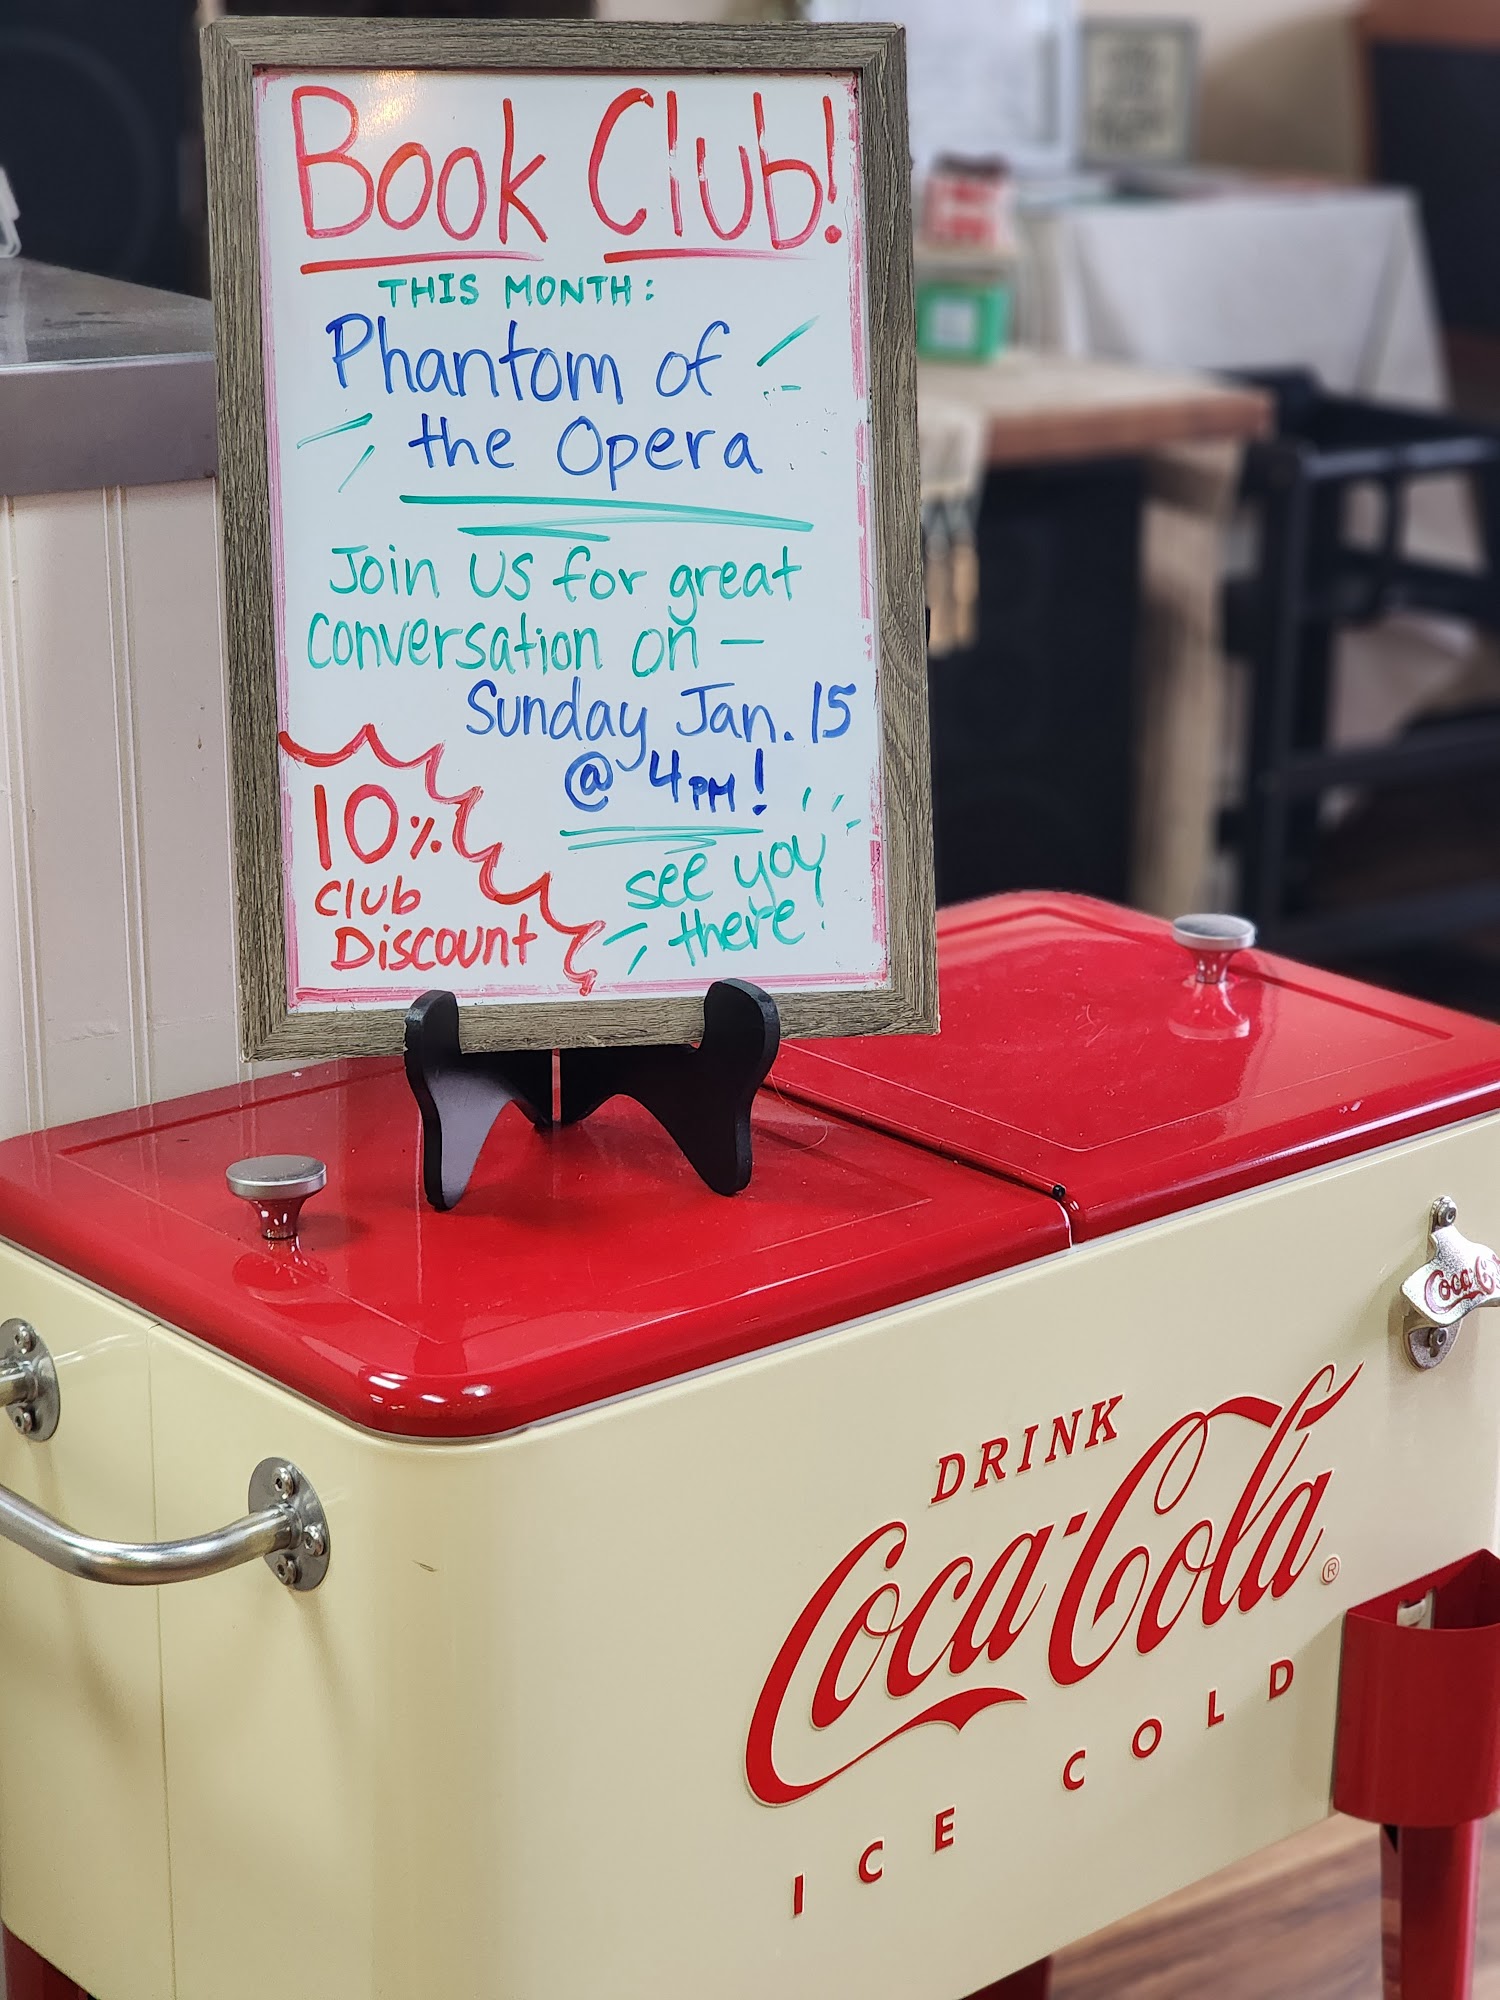 Book Club!
THIS MONTH:
Phantom of
the Opera
Join us for great
conversation on —
Sunday Jan. 15
@ 4PM!
10%
Club
Discount
see you
there!
DRINK
Coca-Cola®
ICE COLD